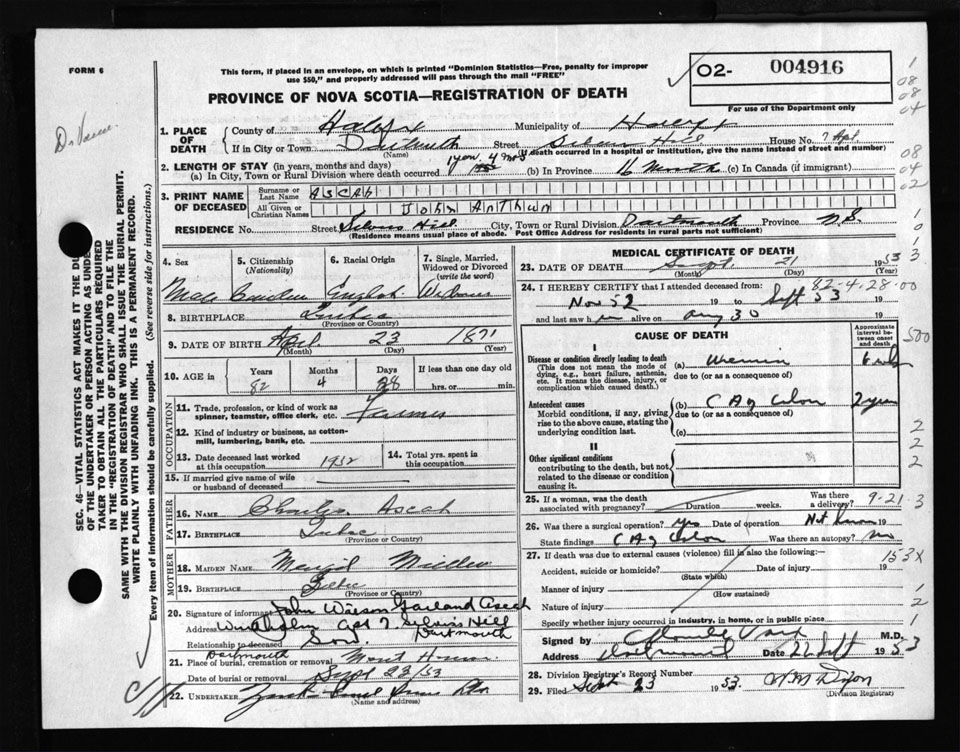 FORM 6
This form, if placed in an envelope, on which is printed "Dominion Statistics—Free, penalty for improper
use $50," and properly addressed will pass through the mail "FREE"
O2- 004916
For use of the Department only
PROVINCE OF NOVA SCOTIA—REGISTRATION OF DEATH
1. PLACE OF DEATH
County of Halifax Municipality of Halifax
If in City or Town Dartmouth Street Hill House No. 7 Apt
(Name) (If death occurred in a hospital or institution, give the name instead of street and number)
2. LENGTH OF STAY (in years, months and days)
(a) In City, Town or Rural Division where death occurred 1 year 4 mos (b) In Province 16 Months (c) In Canada (if immigrant)
3. PRINT NAME OF DECEASED
Surname or Last Name ASCAH
All Given or Christian Names John
RESIDENCE No. Street Hill City, Town or Rural Division Dartmouth Province N.S.
(Residence means usual place of abode. Post Office Address for residents in rural parts not sufficient)
4. Sex Male
5. Citizenship (Nationality)
6. Racial Origin English
7. Single, Married, Widowed or Divorced (write the word)
8. BIRTHPLACE Quebec
(Province or Country)
9. DATE OF BIRTH April 23 1871
(Month) (Day) (Year)
10. AGE in Years Months Days If less than one day
82 4 28 hrs. or min.
OCCUPATION
11. Trade, profession, or kind of work as spinner, teamster, office clerk, etc. Farmer
12. Kind of industry or business, as cotton-mill, lumbering, bank, etc.
13. Date deceased last worked at this occupation 1932
14. Total yrs. spent in this occupation
15. If married give name of wife or husband of deceased
FATHER
16. NAME Charles Ascah
17. BIRTHPLACE Quebec
(Province or Country)
MOTHER
18. MAIDEN NAME
19. BIRTHPLACE Quebec
(Province or Country)
20. Signature of informant John Wilson Garland Ascah
Address Apt 7 Hill
Dartmouth
Relationship to deceased Son
21. Place of burial, cremation or removal Dartmouth
Date of burial or removal Sept 23/53
22. UNDERTAKER
(Name and address)
MEDICAL CERTIFICATE OF DEATH
23. DATE OF DEATH Sept. 21 1953
(Month) (Day) (Year)
82-4-28-00
24. I HEREBY CERTIFY that I attended deceased from:
Nov 52 19 to Sept 53 19
and last saw h alive on Aug 30 19
CAUSE OF DEATH
Approximate interval between onset and death
I
Disease or condition directly leading to death
(This does not mean the mode of dying, e.g., heart failure, asthenia, etc. It means the disease, injury, or complication which caused death.)
(a) Uremia
due to (or as a consequence of)
Antecedent causes
Morbid conditions, if any, giving rise to the above cause, stating the underlying condition last.
(b) CA of Colon 2 years
due to (or as a consequence of)
(c)
II
Other significant conditions
contributing to the death, but not related to the disease or condition causing it.
25. If a woman, was the death associated with pregnancy? Duration weeks. Was there a delivery?
9-21-3
26. Was there a surgical operation? yes Date of operation Not known 19
State findings CA of Colon Was there an autopsy? no
27. If death was due to external causes (violence) fill in also the following:—
153X
Accident, suicide or homicide? Date of injury 19
(State which)
Manner of injury
(How sustained)
Nature of injury
Specify whether injury occurred in industry, in home, or in public place
Signed by M.D.
Address Dartmouth Date 22 Sept 1953
28. Division Registrar's Record Number
29. Filed Sept 23 1953
(Division Registrar)
SEC. 46—VITAL STATISTICS ACT MAKES IT THE DU
OF THE UNDERTAKER OR PERSON ACTING AS UNDE
TAKER TO OBTAIN ALL THE PARTICULARS REQUIRED
IN THE "REGISTRATION OF DEATH" AND TO FILE THE
SAME WITH THE DIVISION REGISTRAR WHO SHALL ISSUE THE BURIAL PERMIT.
WRITE PLAINLY WITH UNFADING INK. THIS IS A PERMANENT RECORD.
Every item of information should be carefully supplied. (See reverse side for instructions.)